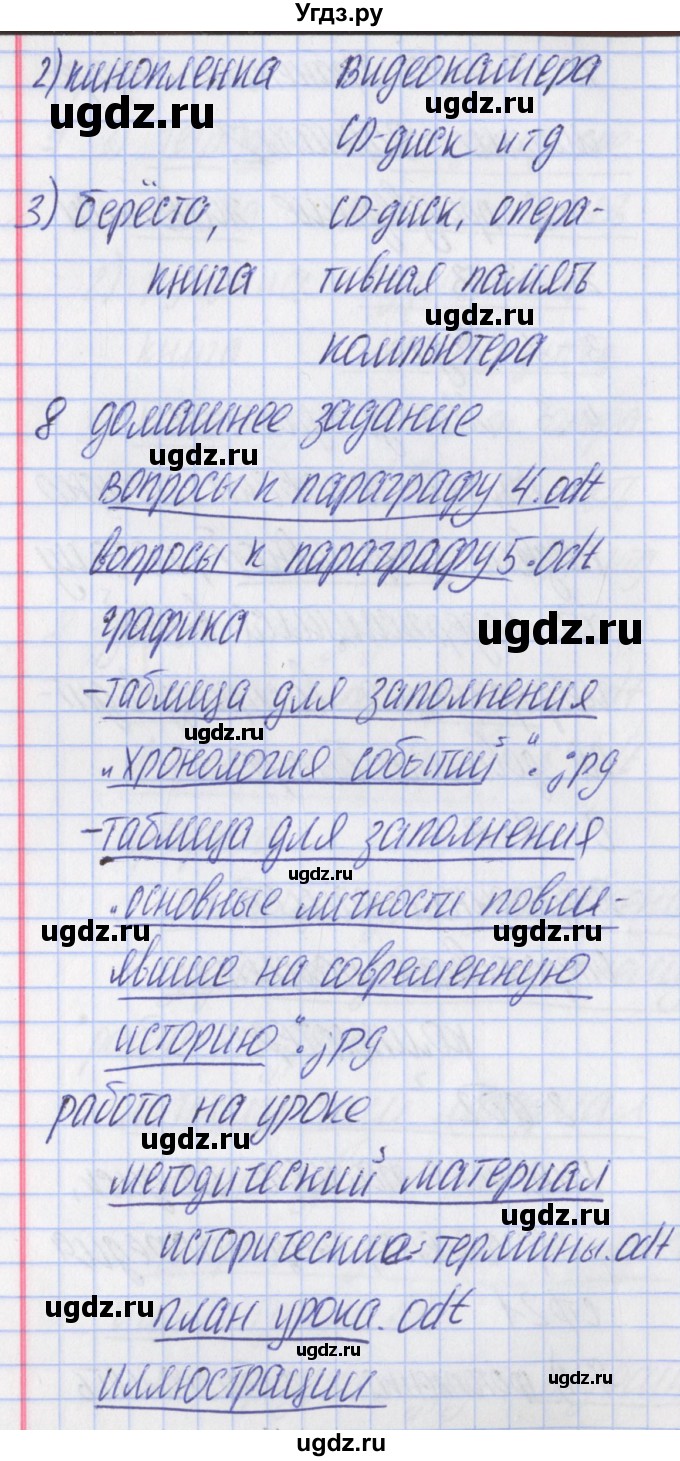 Угдз.ру
2) кинопленка видеокамера
ugdz.ru ugdz.ru
CD-диск итд
3) берёста, CD-диск, опера-
ugdz.ru
книга тивная память
ugdz.ru
компьютера
8 домашнее задание
ugdz.ru
вопросы к параграфу 4.odt
вопросы к параграфу 5.odt
графика ugdz.ru
-таблица для заполнения
ugdz.ru
"хронология событий".jpg
-таблица для заполнения
ugdz.ru
"основные личности повли-
ugdz.ru ugdz.ru
явшие на современную
историю".jpg
работа на уроке
ugdz.ru
методический материал
ugdz.ru
исторические термины.odt
ugdz.ru план урока.odt
ugdz.ru
иллюстрации ugdz.ru
ugdz.ru